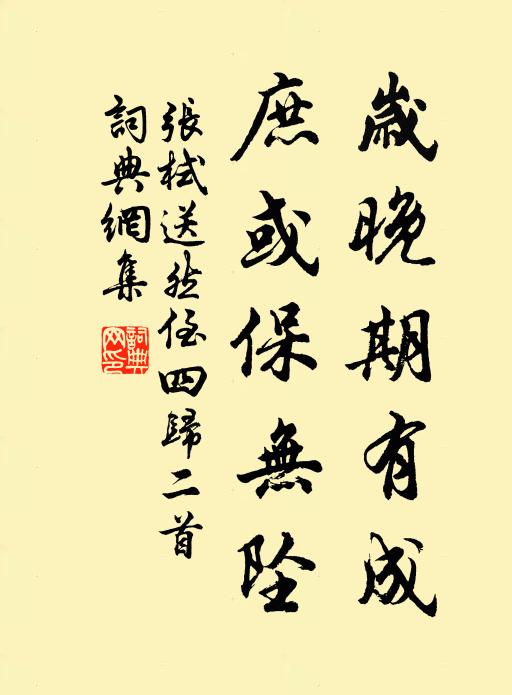 歲晚期有成
庶或保無墜
張栻送然侄四歸二首
詞典網集
詞典網印